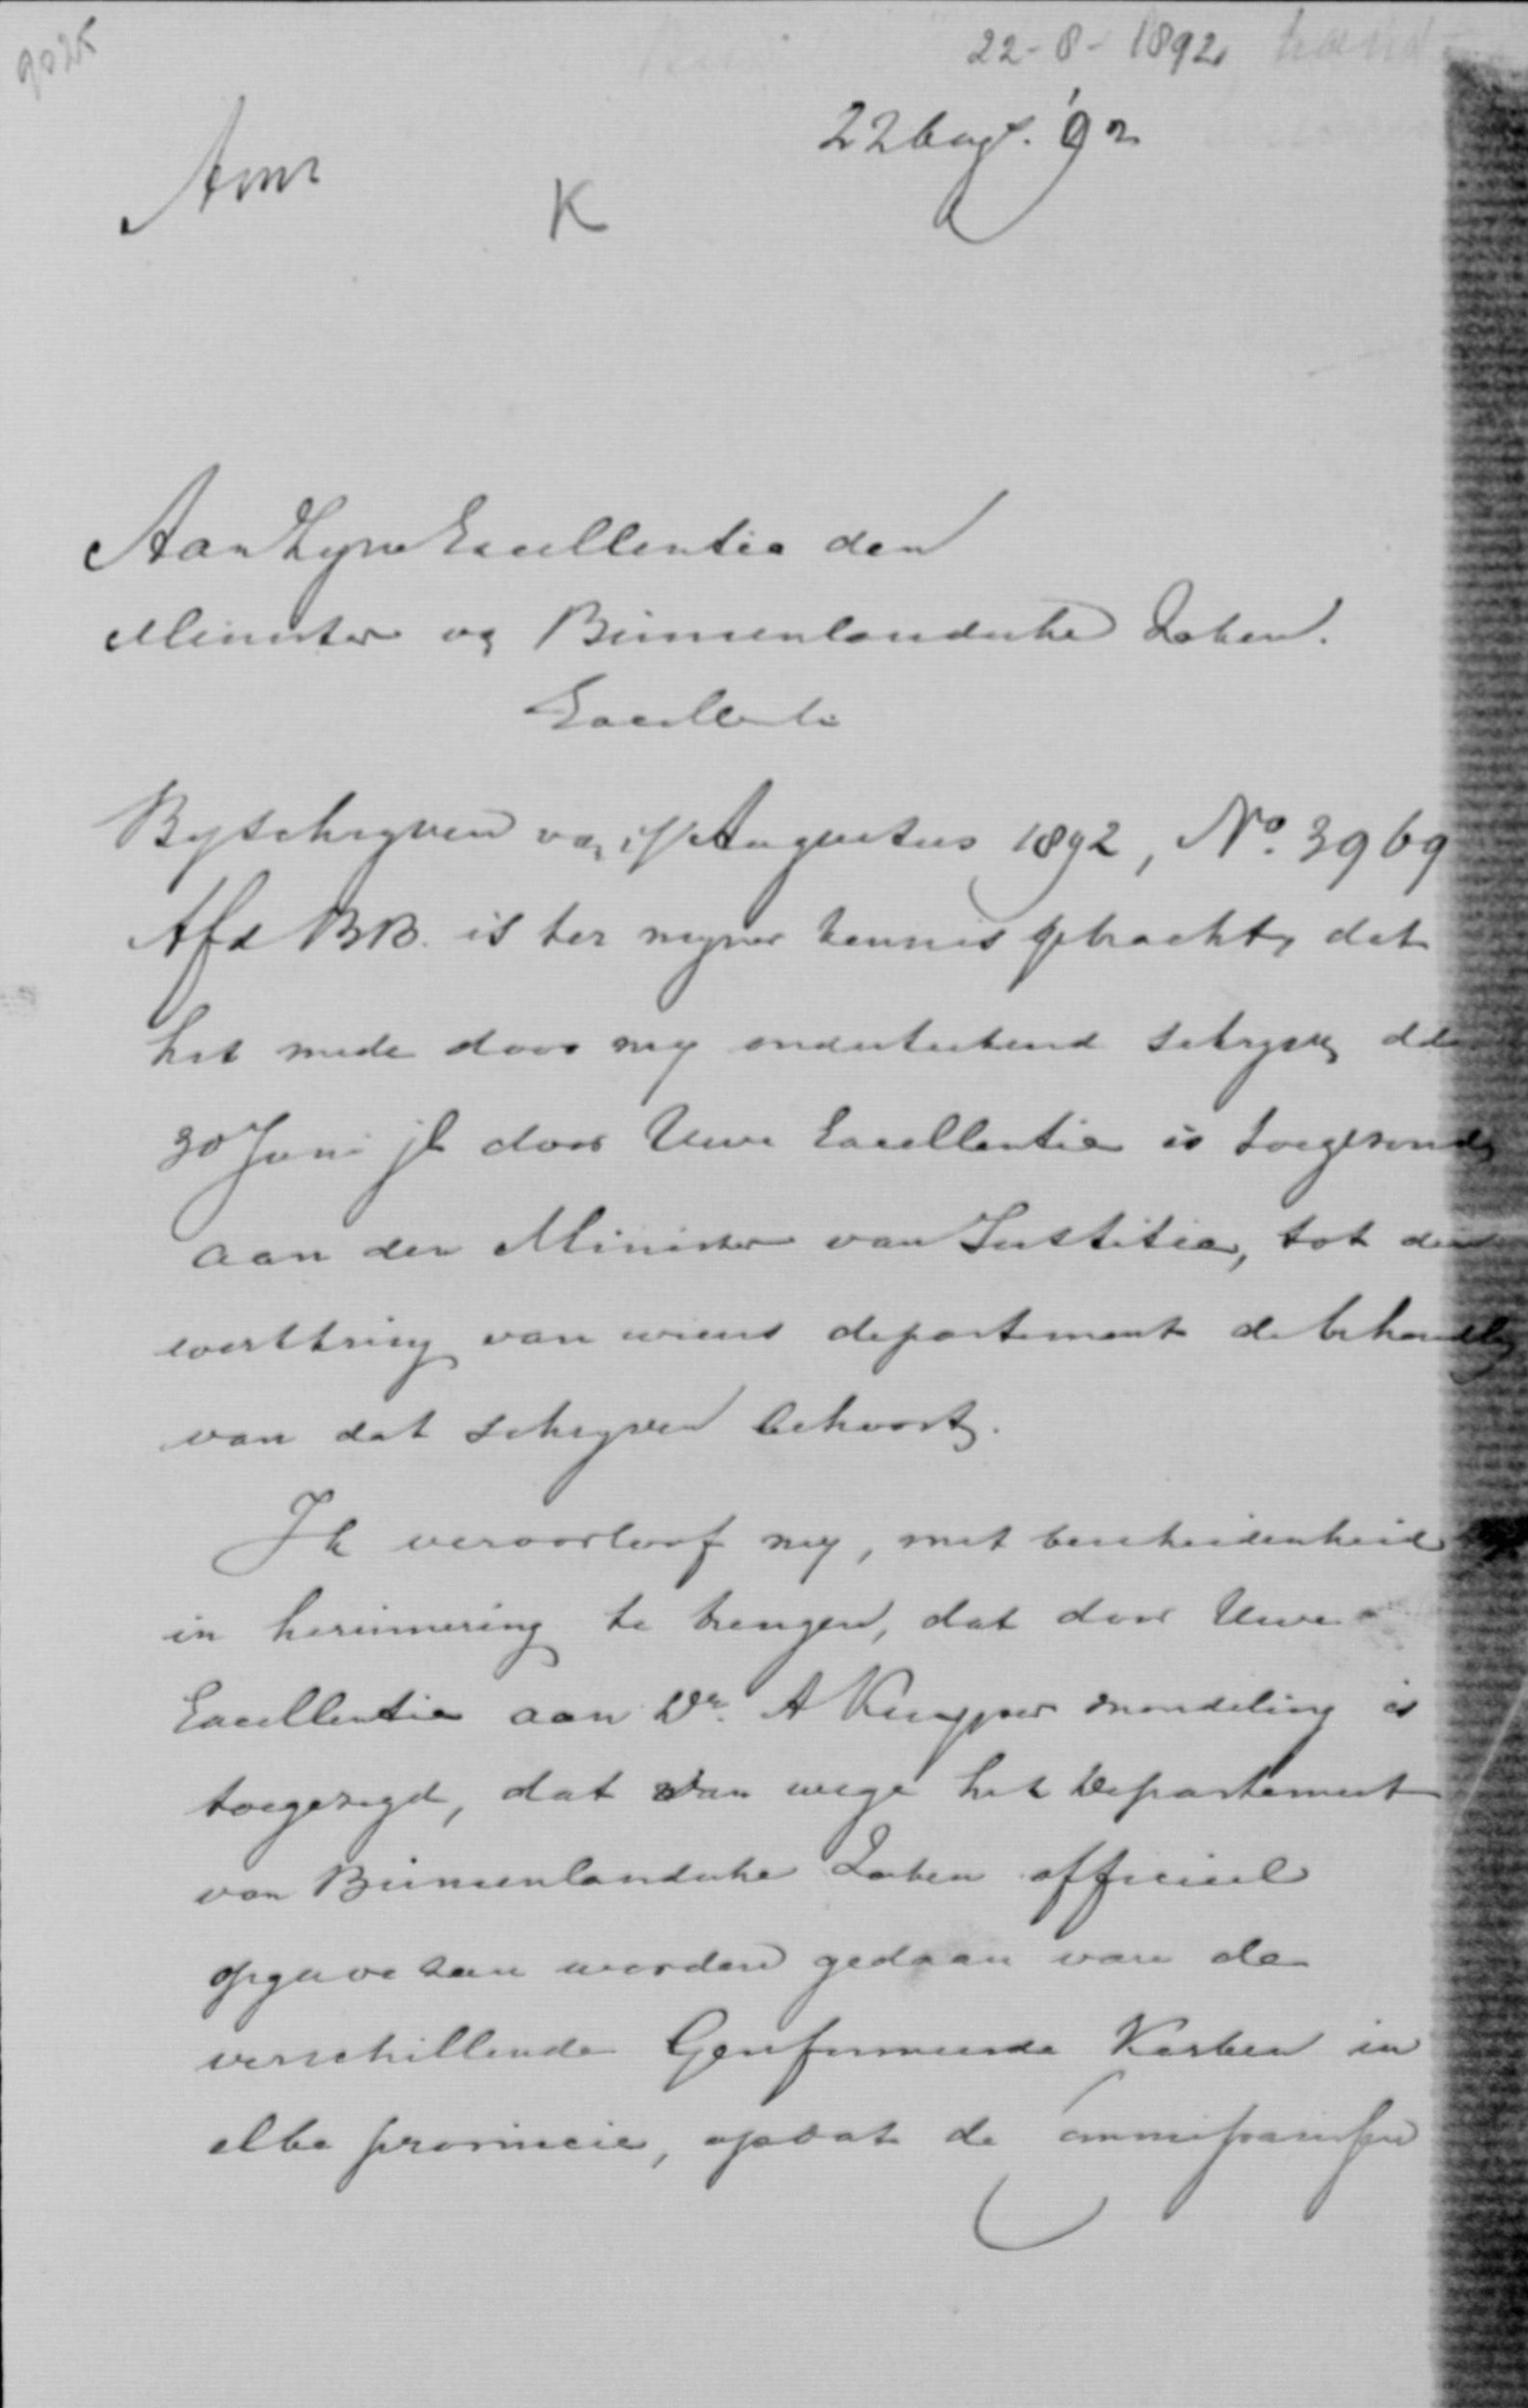 9025
22-8-1892
22 Augt. '92
Am
K
Aan Zyne Excellentie den
Minister van Binnenlandsche Zaken.
Excellentie
By schryven van Augustus 1892, No. 3969
Afd BB. is ter myner kennis gebracht, dat
het mede door my onderteekend schryven dd
30 Juni jl door Uwe Excellentie is toegezonden
aan den Minister van Justitie, tot den
werkkring van wiens departement de behandeling
van dat schryven behoort.
Ik veroorloof my, met bescheidenheid
in herinnering te brengen, dat door Uwe
Excellentie aan Dr. A Kuyper mondeling is
toegezegd, dat van wege het Departement
van Binnenlandsche Zaken officieel
opgave zou worden gedaan van de
verschillende Gereformeerde Kerken in
elke provincie, opdat de